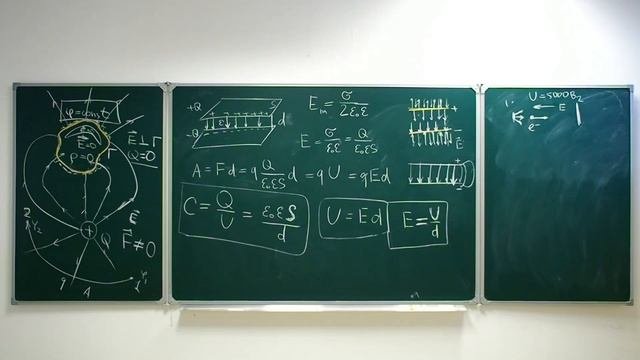 φ=const
E=0
ρ=0
E⃗⊥Γ
Q=0
E⃗
F⃗≠0
Q
2
φ₂
q
A
φ₁
1
+Q
S
-Q
d
Eпл = σ/2ε₀ε
E = σ/ε₀ε = Q/ε₀εS
A = Fd = q Q/ε₀εS d = qU = qEd
C = Q/U = ε₀εS/d
U = Ed
E = U/d
+
-
E⃗
+
-
1.
U=5000В
2
E
e⁻